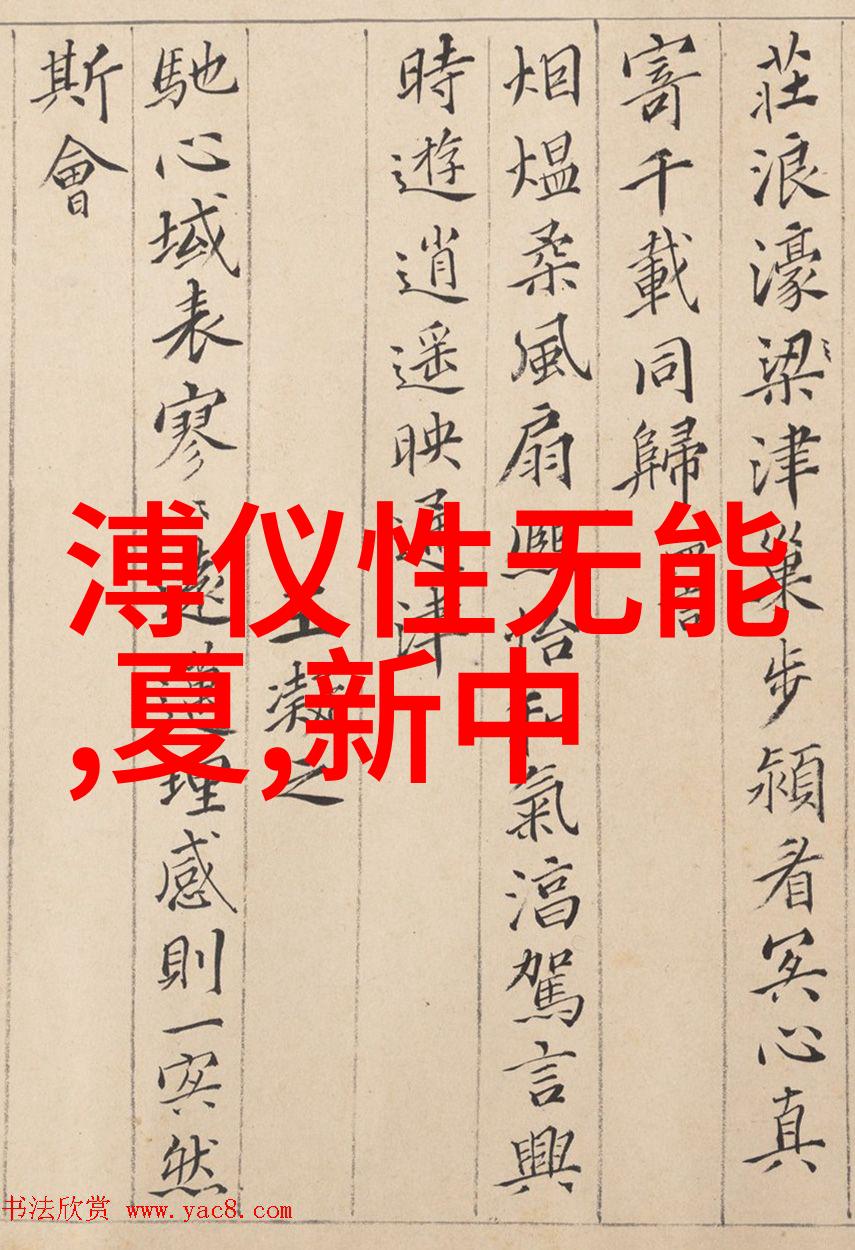 莊浪濠梁津巢步潁看冥心真
寄千載同歸
烟熅柔風扇熙怡和氣淳駕言興
時遊逍遥映通津
王凝之
馳心域表寥々遠邁理感則一冥然
斯會
溥仪性无能
,夏,新中
书法欣赏 www.yac8.com